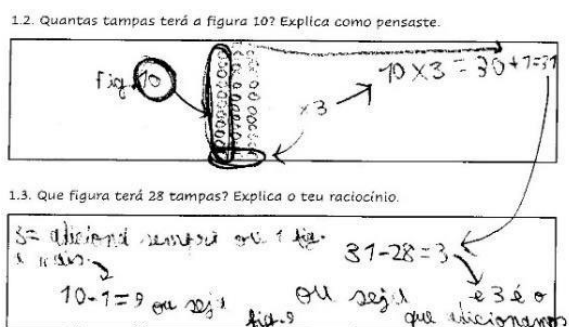 1.2. Quantas tampas terá a figura 10? Explica como pensaste.
Fig. 10
×3
10 × 3 = 30 + 1 = 31
1.3. Que figura terá 28 tampas? Explica o teu raciocínio.
3 = adiciona sempre 1 fig.
a mais.
31 - 28 = 3
10 - 1 = 9 ou seja fig. 9
ou seja e 3 é o
que adicionamos